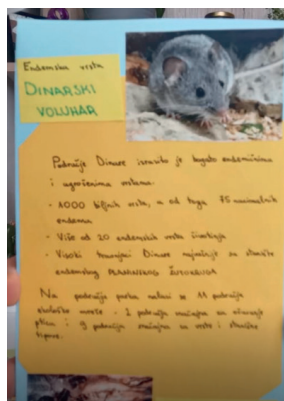 Endemska vrsta
DINARSKI
VOLUHAR
Područje Dinare izrazito je bogato endemičnim
i ugroženim vrstama.
- 1000 biljnih vrsta, a od toga 75
endema
- Više od 20 endemskih vrsta
- Visoki travnjaci Dinare najvažnije su stanište
endemskog PLANINSKOG ŽUTOKRUGA
Na području parka nalazi se 11 područja
ekološke mreže - 2 područja značajna za očuvanje
ptica i 9 područja značajna za vrste i stanišne
tipove.